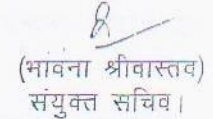 (भावना श्रीवास्तव)
संयुक्त सचिव।